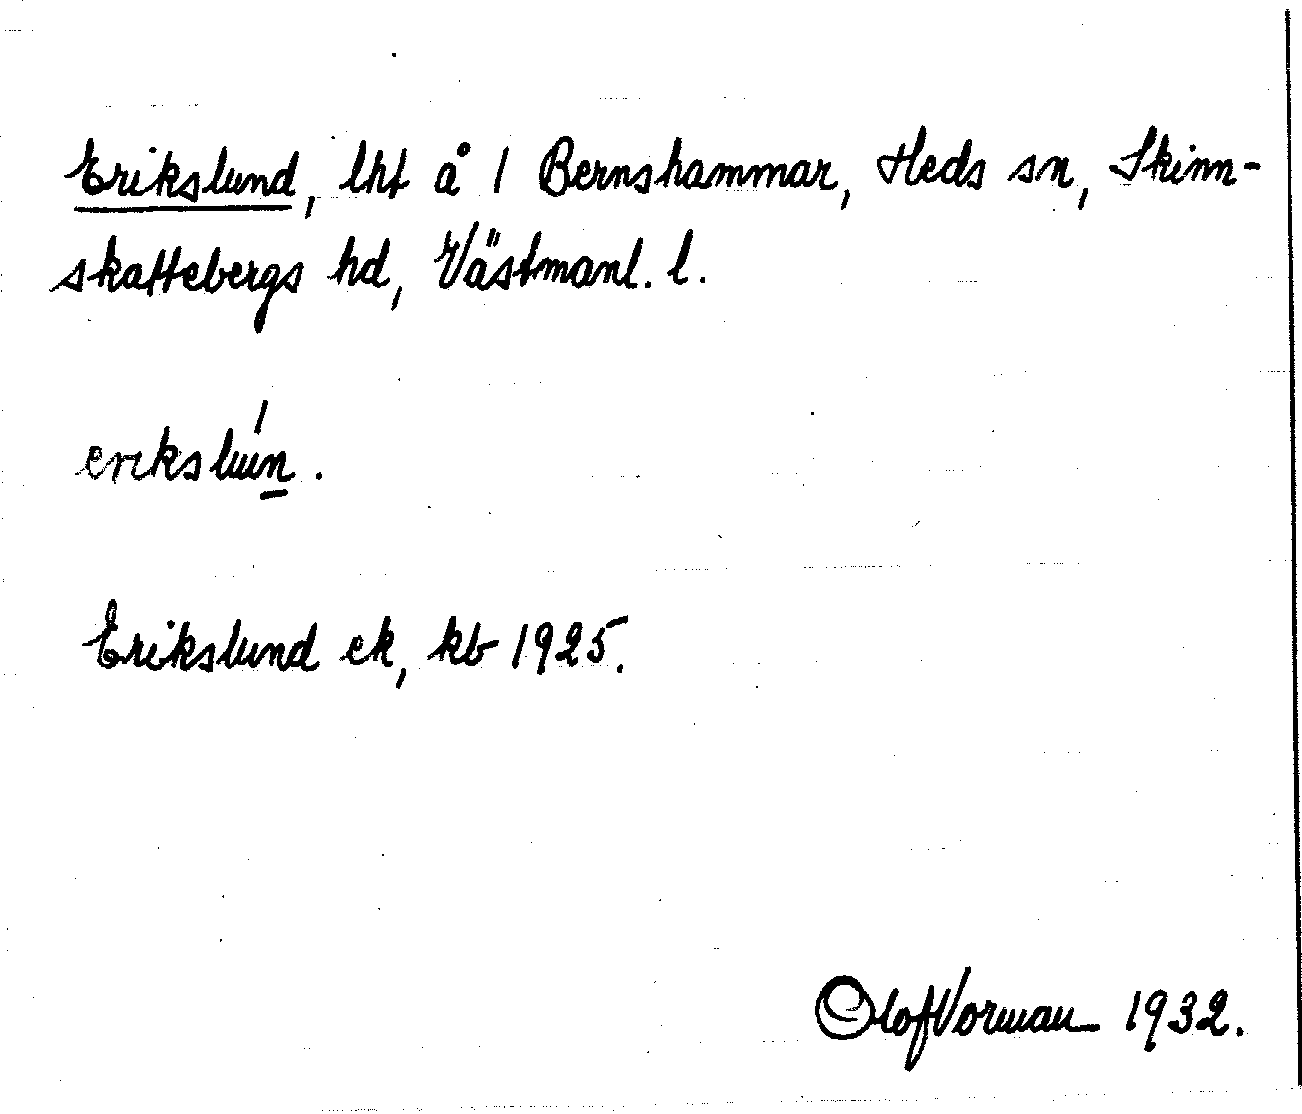 Erikslund, lht å 1 Bernshammar, Heds sn, Skinn-
skattebergs hd, Västmanl. l.
erikslún.
Erikslund ek, kb 1925.
Olof Vorman 1932.